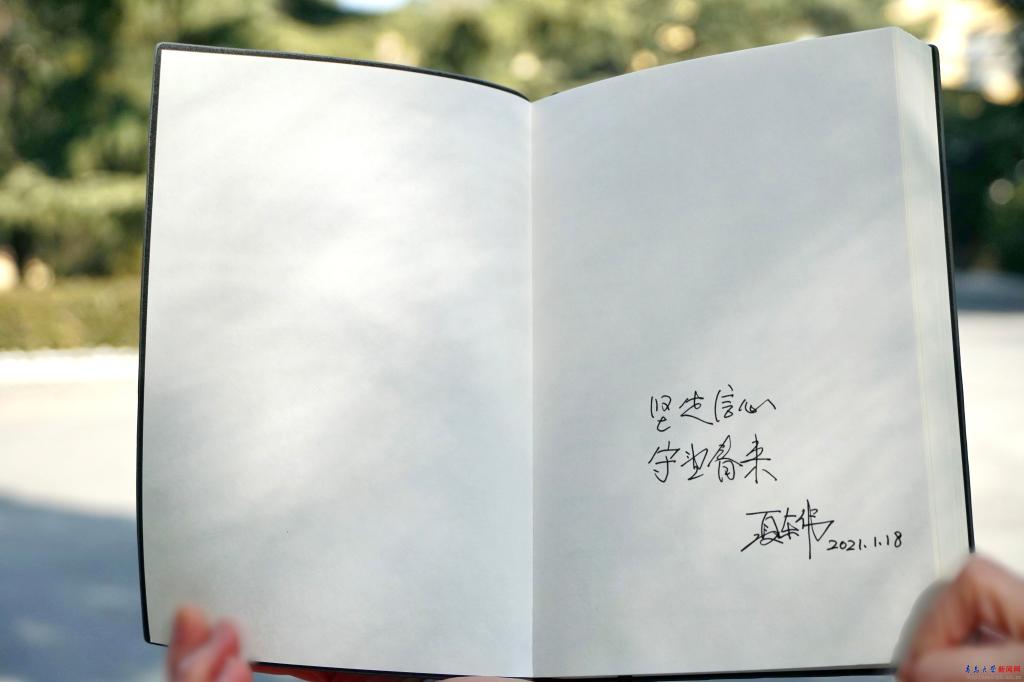 坚定信心
守望春来
夏东伟 2021.1.18
青岛大学新闻网